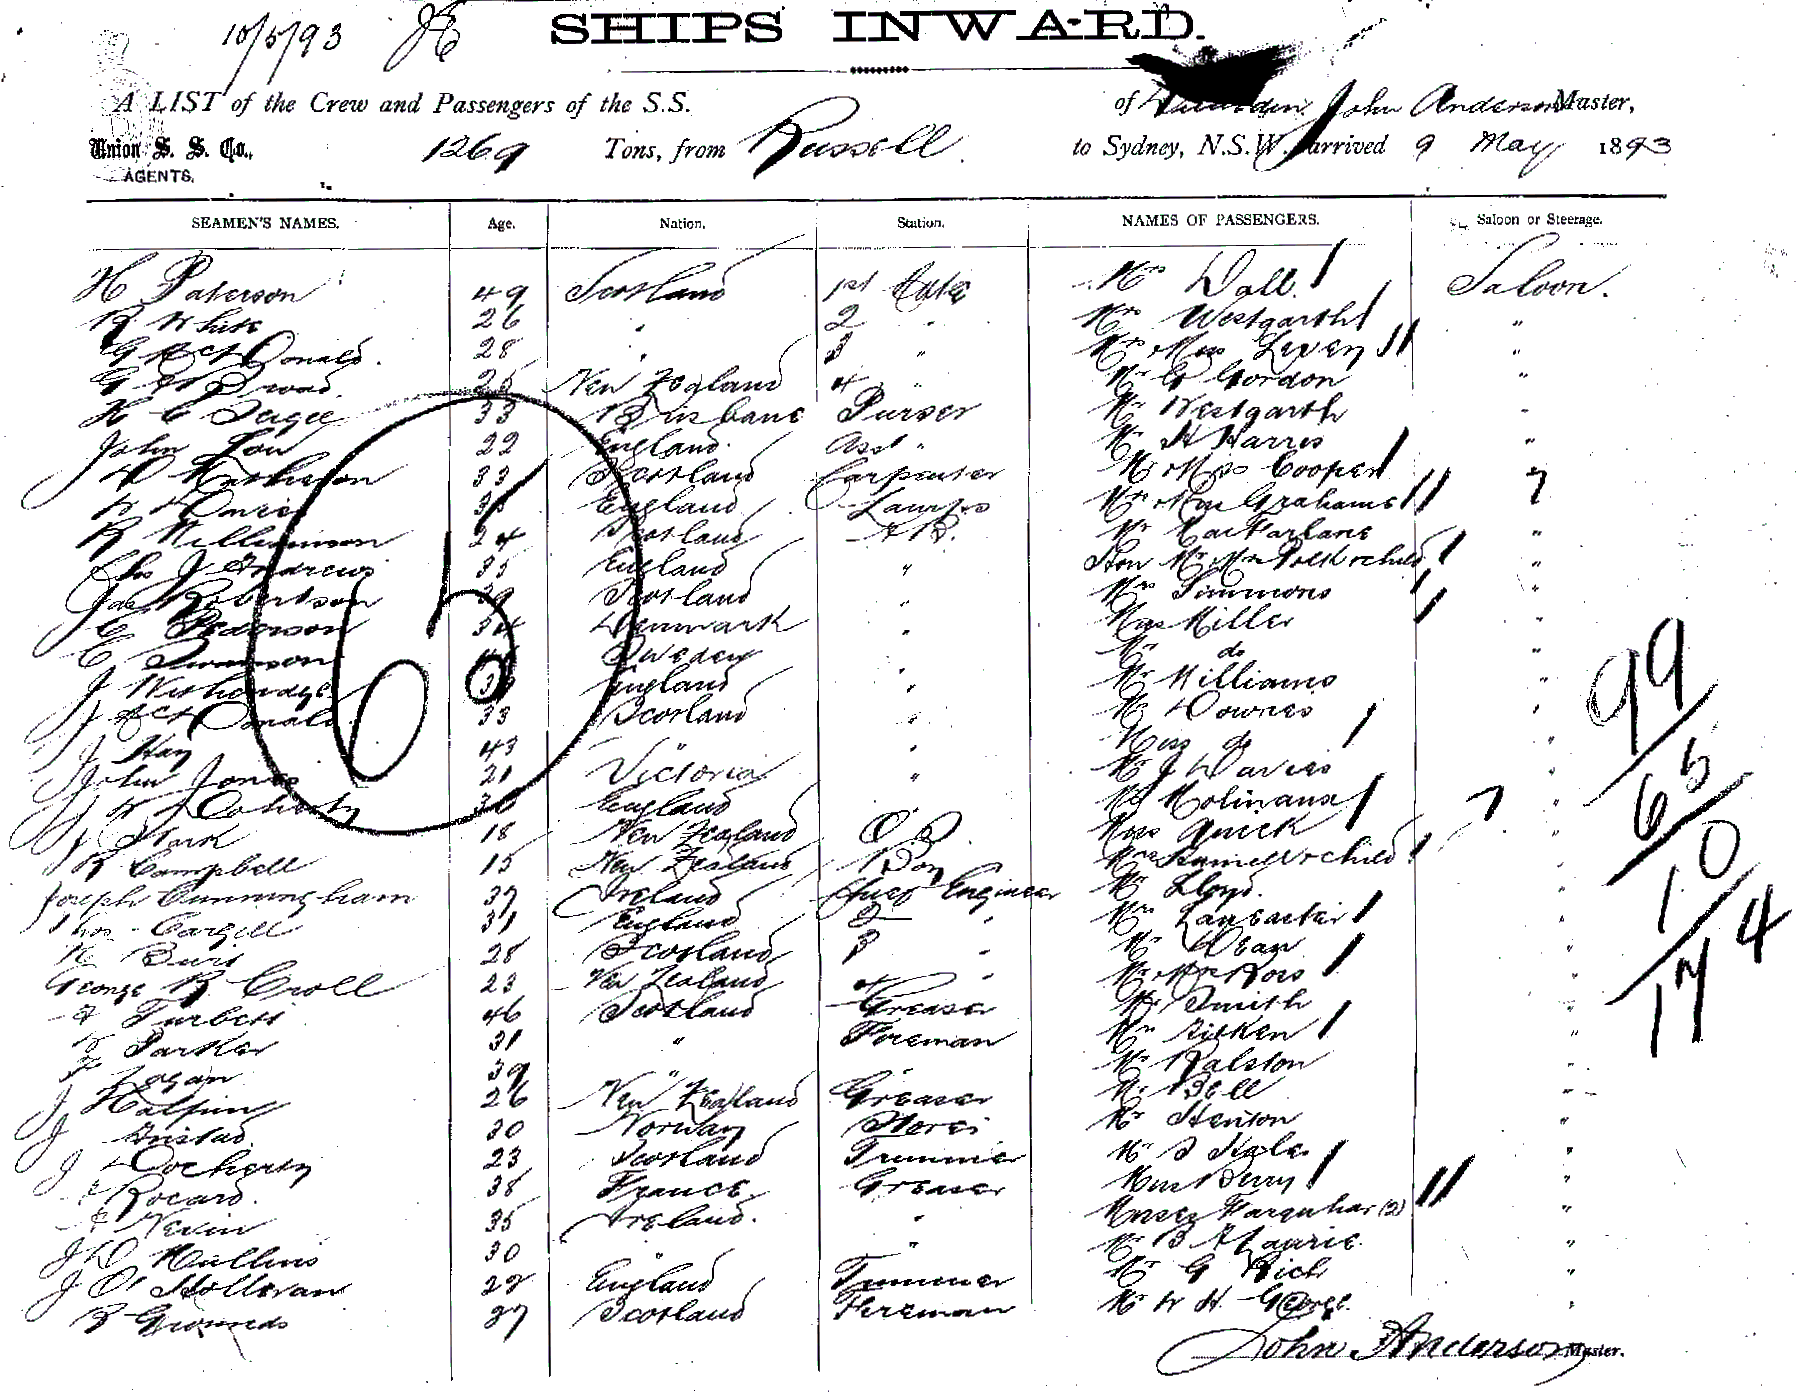 10/5/93
SHIPS INWARD.
A LIST of the Crew and Passengers of the S.S. of John Anderson Master,
Union S. S. Co., AGENTS. 1269 Tons, from Russell to Sydney, N.S.W. arrived 9 May 1893
SEAMEN'S NAMES. Age. Nation. Station. NAMES OF PASSENGERS. Saloon or Steerage.
H Paterson 49 Scotland 1st Mate Mrs Wall. Saloon.
R White 26 " 2 " Mrs Westgarth "
G McDonald. 28 " 3 " Mr & Mrs Leven "
G 25 New Zealand 4 " Mr G Gordon "
H C 33 Brisbane Purser Mr Westgarth "
John Low 22 England Asst " Mr H Harris "
Mathieson 33 Scotland Carpenter Mr & Mrs Cooper "
Davies England Lamps Mr & Mrs Grahame "
R Williamson 24 Scotland A B. Mr MacFarlane "
Chas J Andrews 35 England " Hon Mr & Mrs & child "
Jas Robertson 39 Scotland " Mrs Simmons "
C Pederson 34 Denmark " Miss Miller "
C Swanson Sweden Mr do "
J England " Mr Williams "
J McDonald. 33 Scotland " Mr Downes "
J Hay 43 " " Miss do "
John Jones 21 Victoria " Mr J Davies "
J Doherty 30 England Molinaux "
J Stark 18 New Zealand O S Miss Quick "
R Campbell 15 New Zealand Boy Mrs & child "
Joseph Cunningham 37 Ireland Chief Engineer Mr Lloyd. "
Thos Cargill 31 England 2 " Mrs Lancaster "
Burt 28 Scotland 3 " Mr Dean "
George R Croll 23 New Zealand 4 " Mr & Mrs Ross "
Turbett 46 Scotland Greaser Mr Smith "
Parker 31 " Foreman Mrs Aitken "
Logan 39 " Mr Ralston "
J Halpin 26 New Zealand Greaser Mr Bell "
J 30 Norway Stores Mr Henton "
J Docherty 23 Scotland Trimmer Mr Hale "
Rocard. 38 France Greaser Miss Berry "
Nevin 35 Ireland. " Misses Farquhar (2) "
J D Mullins 30 " " Mr Laurie. "
J O'Holloran England Trimmer Mr G Rich "
R Grounds 27 Scotland Fireman Mr W H. George. "
John Anderson Master.
99
65
10
174